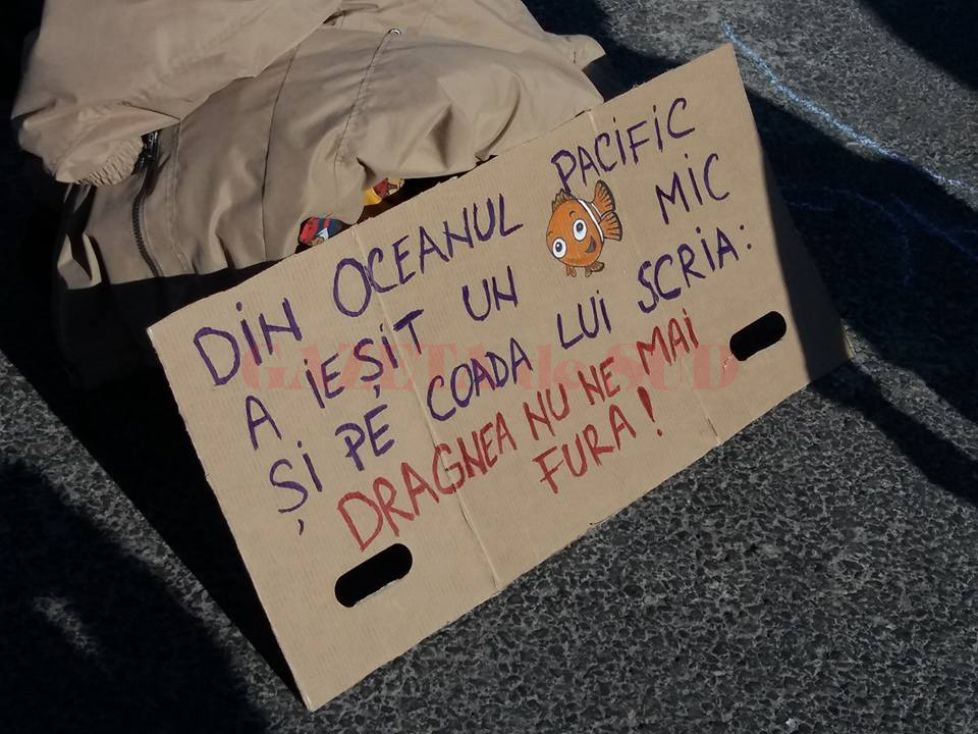 DIN OCEANUL PACIFIC
A IEȘIT UN MIC
ȘI PE COADA LUI SCRIA:
DRAGNEA NU NE MAI
FURA!
GAZETA de SUD